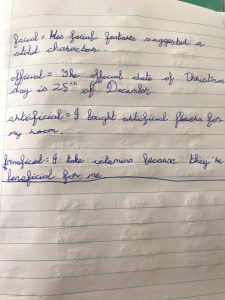 facial = Her facial features suggested a
solid character.
official = The official date of Christmas
day is 25th of December.
artificial = I bought artificial flowers for
my room.
beneficial = I take vitamins because they're
beneficial for me